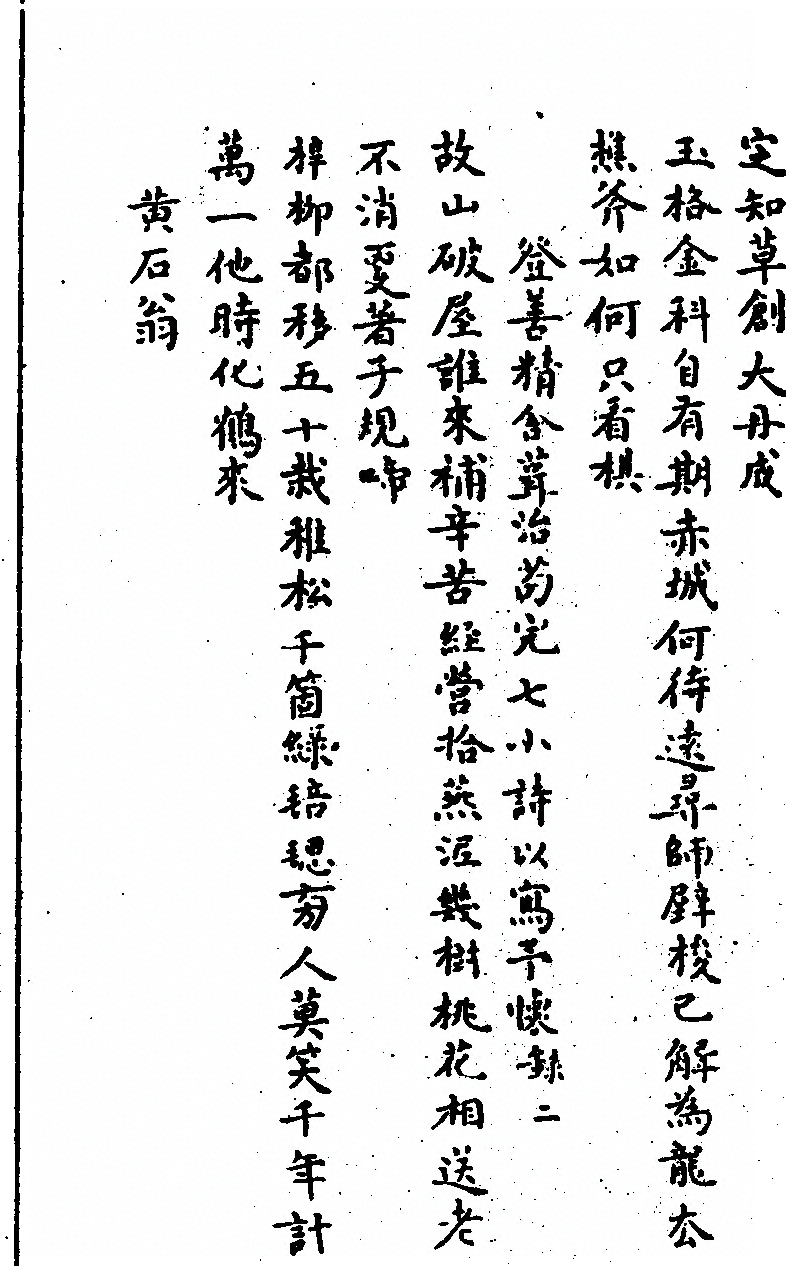 定知草創大丹成
玉格金科自有期赤城何待遠尋師壁梭已解為龍去
樵斧如何只看棋
登善精舍葺治苟完七小詩以寫予懷錄二
故山破屋誰來補辛苦經營拾燕泥幾樹桃花相送老
不消更著子規啼
梓柳都移五十栽稚松千箇綠毰毸旁人莫笑千年計
萬一他時化鶴來
黄石翁